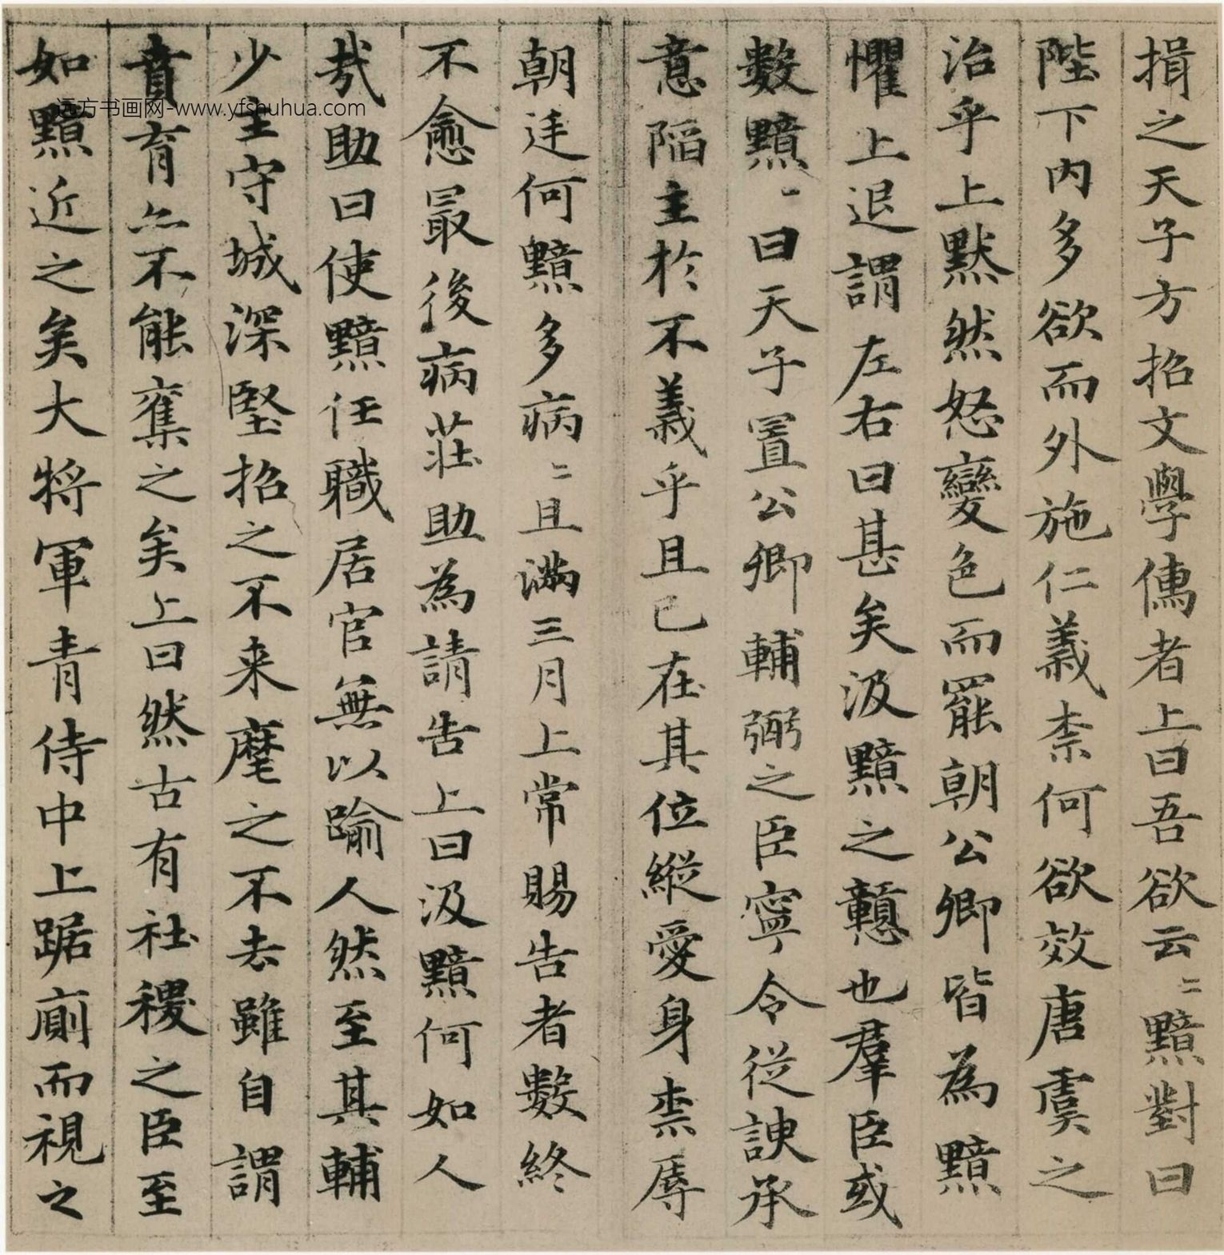 揖之天子方招文學儒者上曰吾欲云〻黯對曰
陛下内多欲而外施仁義柰何欲效唐虞之
治乎上默然怒變色而罷朝公卿皆為黯
懼上退謂左右曰甚矣汲黯之戇也羣臣或
數黯〻曰天子置公卿輔弼之臣寧令從諛承
意陷主於不義乎且已在其位縱愛身柰辱
朝廷何黯多病〻且滿三月上常賜告者數終
不愈最後病莊助為請告上曰汲黯何如人
哉助曰使黯任職居官無以踰人然至其輔
少主守城深堅招之不来麾之不去雖自謂
賁育亦不能奪之矣上曰然古有社稷之臣至
如黯近之矣大將軍青侍中上踞廁而視之
远方书画网-www.yfshuhua.com